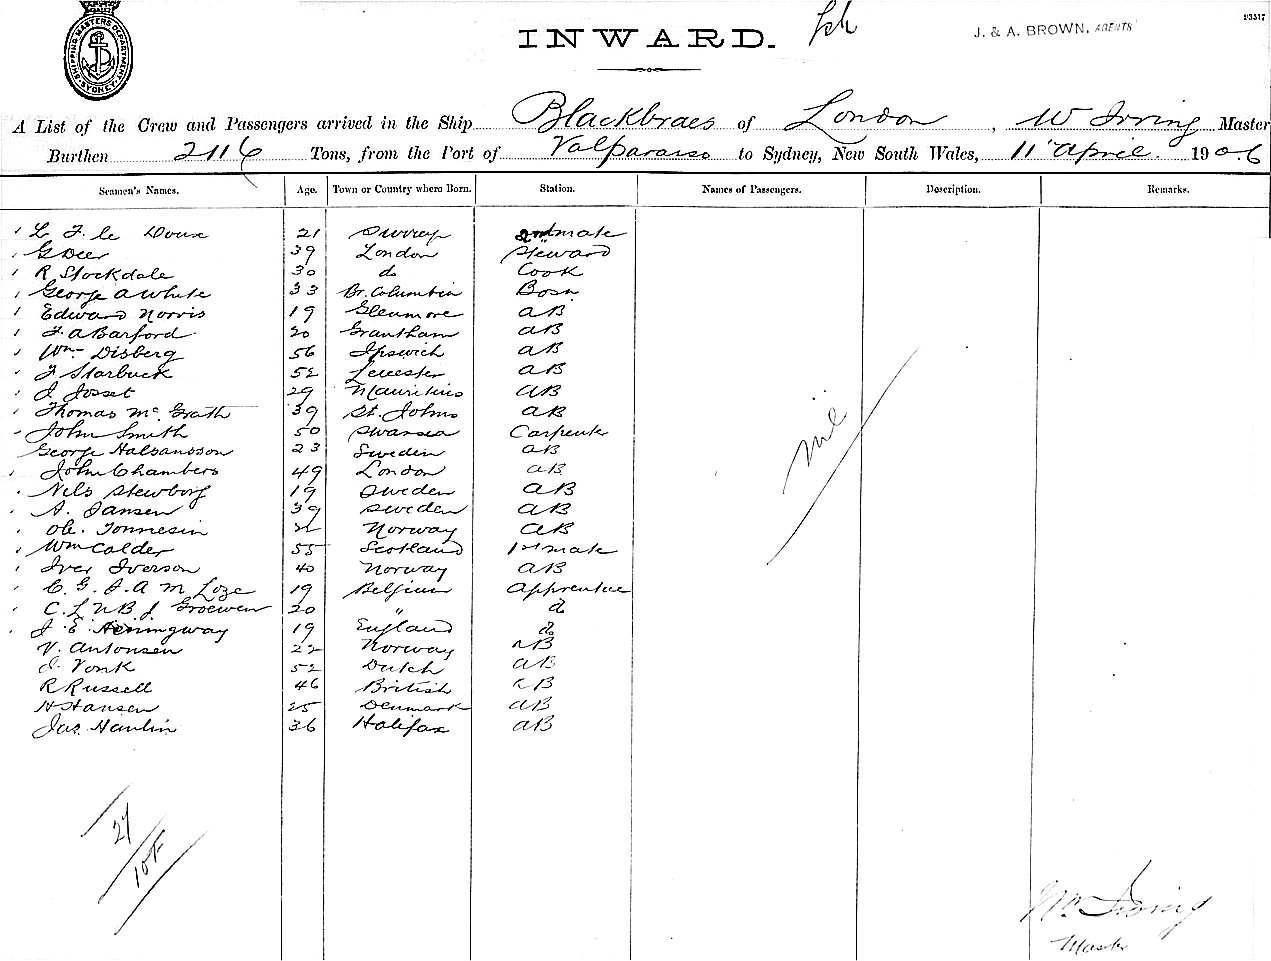 SHIPPING MASTERS DEPARTMENT SYDNEY
INWARD.
J. & A. BROWN, AGENTS
A List of the Crew and Passengers arrived in the Ship Blackbraes of London, W Irving Master
Burthen 2116 Tons, from the Port of Valparaiso to Sydney, New South Wales, 11 April 1906
Seamen's Names. Age. Town or Country where Born. Station. Names of Passengers. Description. Remarks.
L F le Doux 21 Surrey 2nd mate
G Deer 39 London Steward
R Stockdale 30 do Cook
George A White 33 Br. Columbia Bosn
Edward Norris 19 Glenmore AB
F. A Barford 20 Grantham AB
Wm Disberg 56 Ipswich AB
F Starbuck 52 Leicester AB
J Josset 29 Mauritius AB
Thomas Mc Grath 39 St. Johns AB
John Smith 50 Swansea Carpenter
George Halsansson 23 Sweden AB
John Chambers 49 London AB
Nils Stewborg 19 Sweden AB
A. Jansen 39 Sweden AB
Ole. Tonnesin Norway AB
Wm Calder 55 Scotland 1st mate
Iver Iverson 40 Norway AB
C. G. J. A M Loze 19 Belgium Apprentice
C. L N B J Groewen 20 " d
J. E. Hemingway 19 England d
V. Antonsen 22 Norway AB
J. Vonk 52 Dutch AB
R Russell 46 British AB
H Hansen 25 Denmark AB
Jas. Hamlin 36 Halifax AB
nil
27
Wm Irving
Master